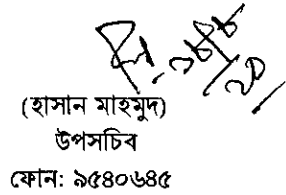 (হাসান মাহমুদ)
উপসচিব
ফোন: ৯৫৪০৬৪৫